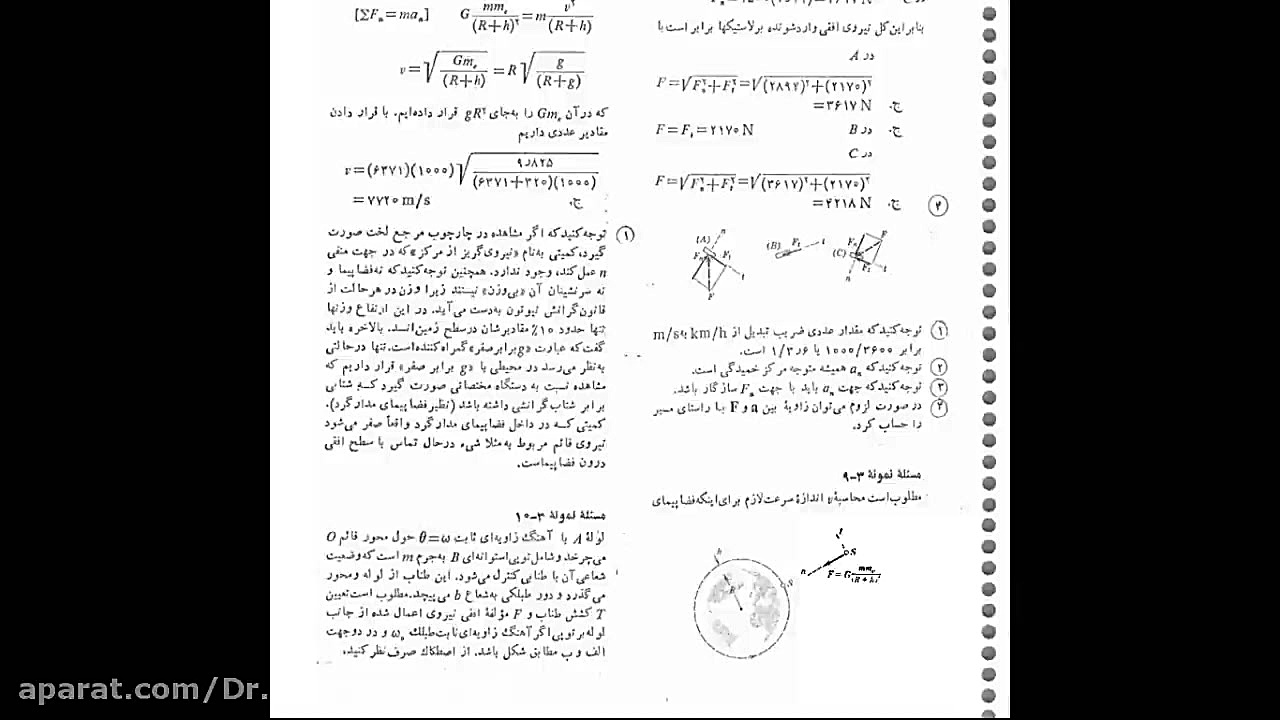 بنابراین کل نیروی افقی وارد شونده بر لاستیکها برابر است با
در A
F=√F_n²+F_t²=√(۲۸۹۴)²+(۲۱۷۰)²
=۳۶۱۷ N ج.
در B F=F_t=۲۱۷۰ N ج.
در C
F=√F_n²+F_t²=√(۳۶۱۷)²+(۲۱۷۰)²
=۴۲۱۸ N ج.
۴
(A) n F_n F_t t F
(B) F_t t
(C) F_n F F_t t n
۱ توجه کنید که مقدار عددی ضریب تبدیل از km/h به m/s
برابر ۱۰۰۰/۳۶۰۰ یا ۱/۳٫۶ است.
۲ توجه کنید که a_n همیشه متوجه مرکز خمیدگی است.
۳ توجه کنید که جهت a_n باید با جهت F_n سازگار باشد.
۴ در صورت لزوم می‌توان زاویهٔ بین a و F با راستای مسیر
را حساب کرد.
مسئلهٔ نمونهٔ ۳-۹
مطلوب است محاسبهٔ v اندازهٔ سرعت لازم برای اینکه فضاپیمای
S
n
F=G mm_e/(R+h)²
h
R
[ΣF_n=ma_n] G mm_e/(R+h)² = m v²/(R+h)
v=√Gm_e/(R+h) = R√g/(R+g)
که در آن Gm_e را به‌جای gR² قرار داده‌ایم. با قرار دادن
مقادیر عددی داریم
v=(۶۳۷۱)(۱۰۰۰)√۹٫۸۲۵/(۶۳۷۱+۳۲۰)(۱۰۰۰)
=۷۷۲۰ m/s ج.
۱ توجه کنید که اگر مشاهده در چارچوب مرجع لخت صورت
گیرد، کمیتی به‌نام «نیروی گریز از مرکز» که در جهت منفی
n عمل کند، وجود ندارد. همچنین توجه کنید که نه فضاپیما و
نه سرنشینان آن «بی‌وزن» نیستند زیرا وزن در هر حالت از
قانون گرانش نیوتون به‌دست می‌آید. در این ارتفاع وزنها
تنها حدود ۱۰٪ مقادیرشان در سطح زمین‌اند. بالاخره باید
گفت که عبارت «g برابر صفر» گمراه کننده است. تنها در حالتی
به‌نظر می‌رسد در محیطی با «g برابر صفر» قرار داریم که
مشاهده نسبت به دستگاه مختصاتی صورت گیرد که شتابی
برابر شتاب گرانشی داشته باشد (نظیر فضاپیمای مدارگرد).
کمیتی که در داخل فضاپیمای مدارگرد واقعاً صفر می‌شود
نیروی قائم مربوط به مثلا شیء در حال تماس با سطح افقی
درون فضاپیماست.
مسئلهٔ نمونهٔ ۳-۱۰
لولهٔ A با آهنگ زاویه‌ای ثابت θ̇=ω حول محور قائم O
می‌چرخد و شامل توپی استوانه‌ای B به جرم m است که وضعیت
شعاعی آن با طنابی کنترل می‌شود. این طناب از لوله و محور
می‌گذرد و دور طبلکی به شعاع b می‌پیچد. مطلوب است تعیین
T کشش طناب و F مؤلفهٔ افقی نیروی اعمال شده از جانب
لوله بر توپی اگر آهنگ زاویه‌ای ثابت طبلک ω₀ و در دو جهت
الف و ب مطابق شکل باشد. از اصطکاک صرف‌نظر کنید.
aparat.com/Dr.